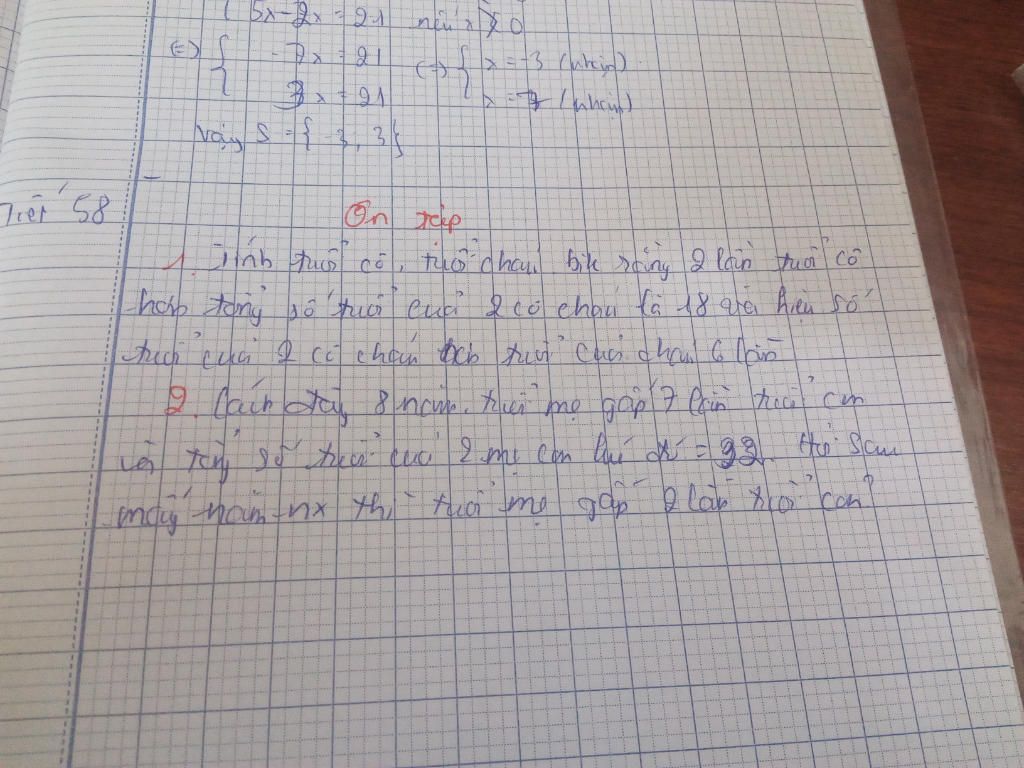 5x-2x = 21 nếu x ≥ 0
<=> { -7x = 21 <=> { x = -3 (nhận)
3x = 21 x = 7 (nhận)
Vậy S = {-3, 3}
Tiết 58
Ôn tập
1. Tính tuổi cô, tuổi cháu, bik rằng 2 lần tuổi cô
hơn tổng số tuổi cuả 2 cô cháu là 18 và hiệu số
tuổi cuả 2 cô cháu tuổi cuả cháu 6 lần
2. Cách đây 8 năm, tuổi mẹ gấp 7 lần tuổi con
và tổng số tuổi cuả 2 mẹ con lúc đó = 32. Hỏi sau
mấy năm nx thì tuổi mẹ gấp 2 lần tuổi con?